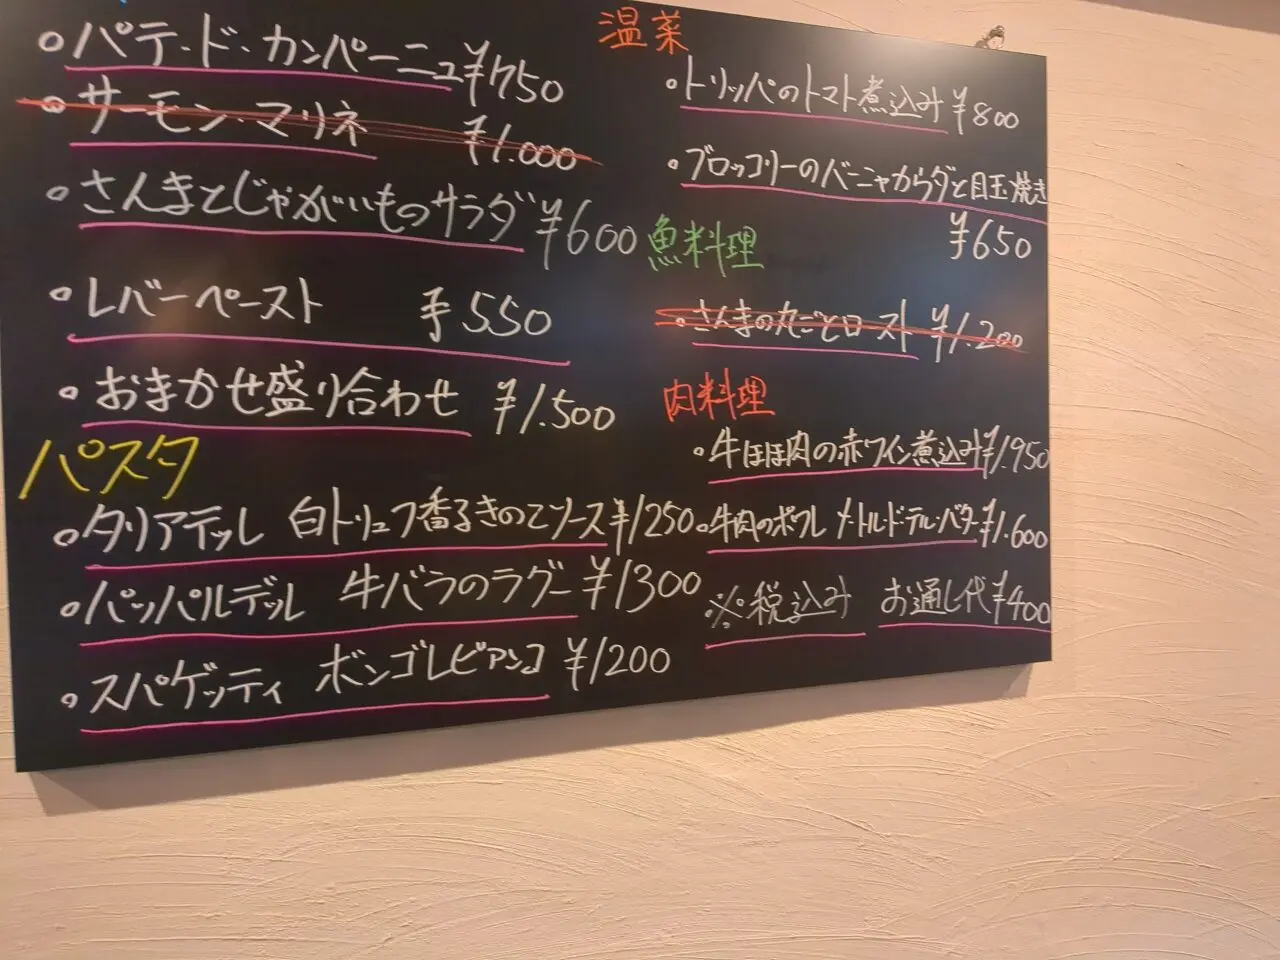 。パテ・ド・カンパーニュ ¥750
。サーモン・マリネ ¥1.000
。さんまとじゃがいものサラダ ¥600
。レバーペースト ¥550
。おまかせ盛り合わせ ¥1.500
パスタ
。タリアテッレ 白トリュフ香るきのこソース ¥1250
。パッパルデッレ 牛バラのラグー ¥1300
。スパゲッティ ボンゴレビアンコ ¥1200
温菜
・トリッパのトマト煮込み ¥800
・ブロッコリーのバーニャカウダと目玉焼き
¥650
魚料理
・さんまの丸ごとロースト ¥1.200
肉料理
・牛ほほ肉の赤ワイン煮込み ¥1.950
・牛肉のポワレ メートル・ド・テル・バター ¥1.600
※税込み お通し代 ¥400